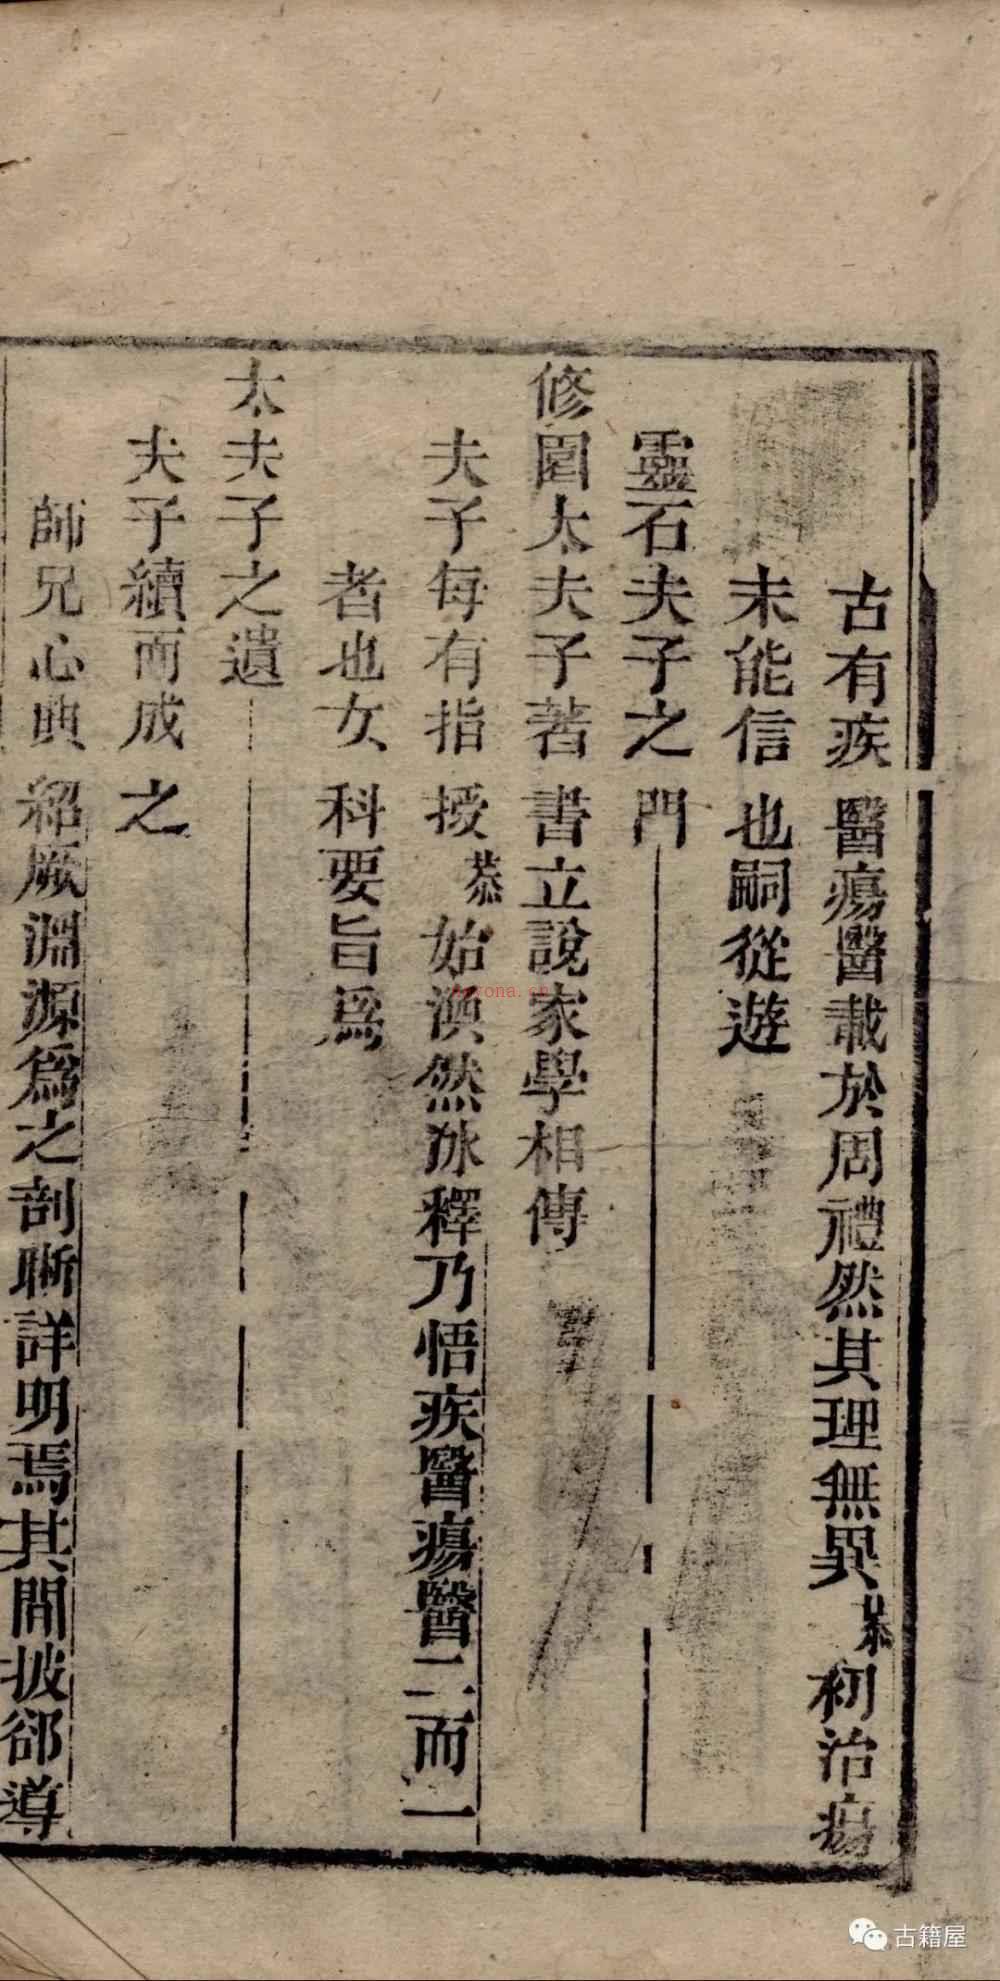 古有疾醫瘍醫載於周禮然其理無異恭初治瘍
未能信也嗣從遊
靈石夫子之門
修園太夫子著書立說家學相傳
夫子每有指授恭始渙然氷釋乃悟疾醫瘍醫二而一
者也女科要旨爲
太夫子之遺
夫子續而成之
師兄心典紹厥淵源爲之剖晣詳明焉其間披郤導
古籍屋